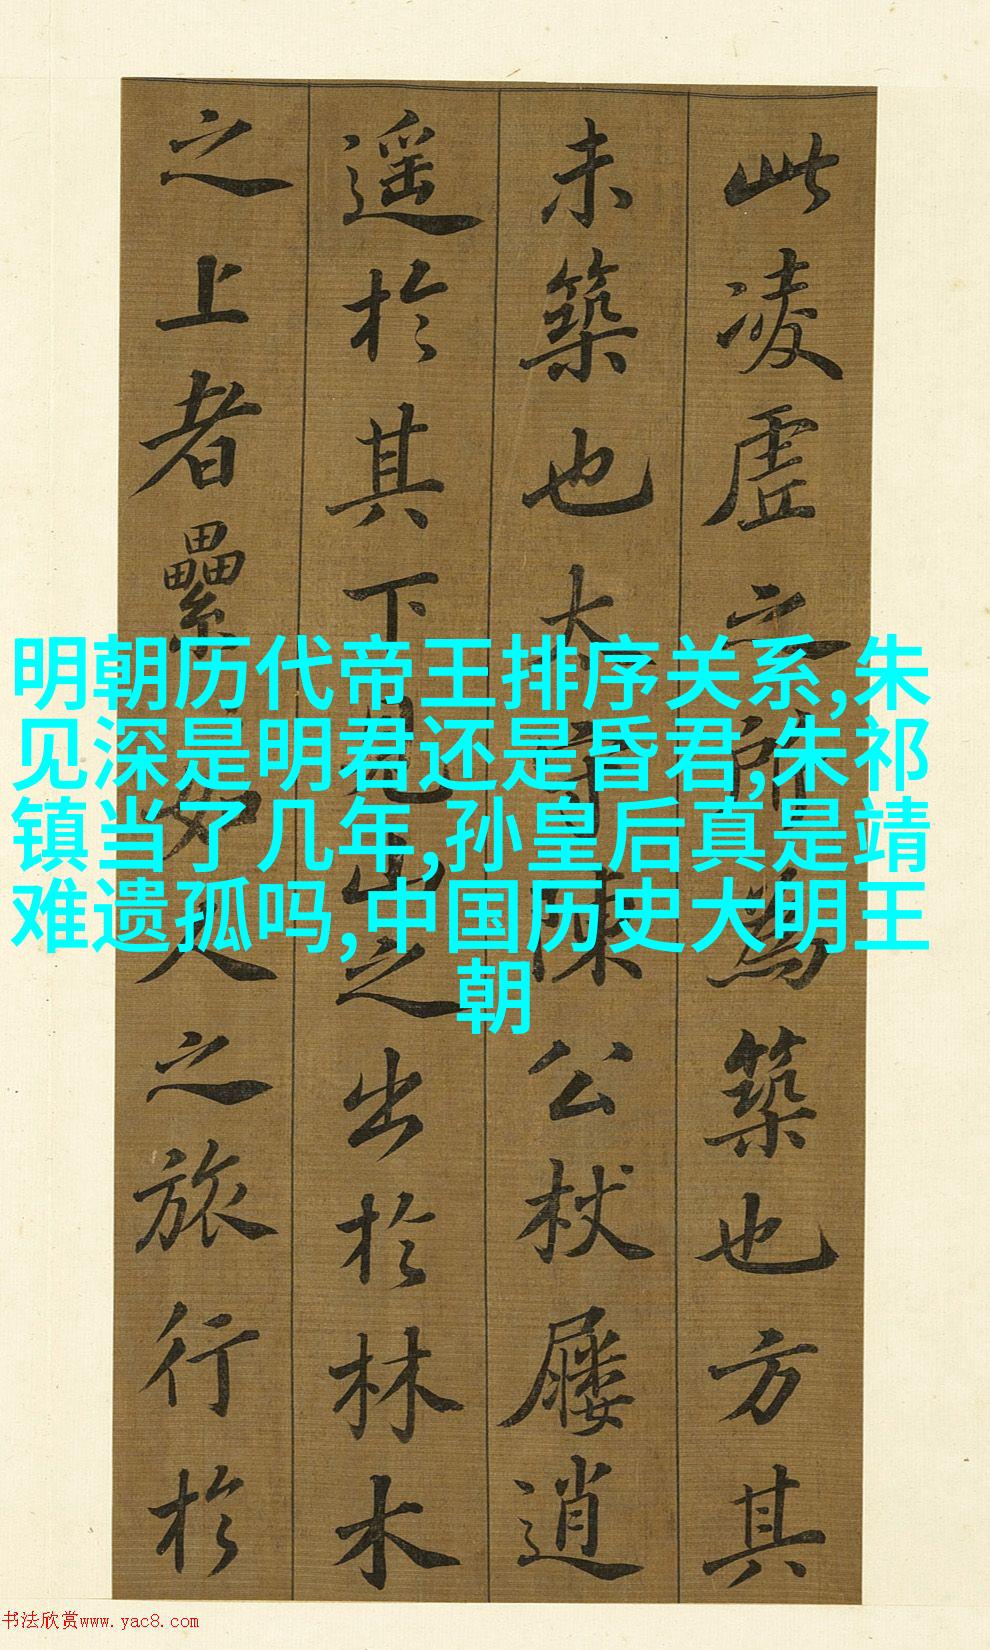 此凌虗之所爲築也方其
未築也太守陳公杖屨逍
遥於其下見山之出於林木
之上者纍纍如人之旅行於
明朝历代帝王排序关系,朱
见深是明君还是昏君,朱祁
镇当了几年,孙皇后真是靖
难遗孤吗,中国历史大明王
朝
书法欣赏www.yac8.com